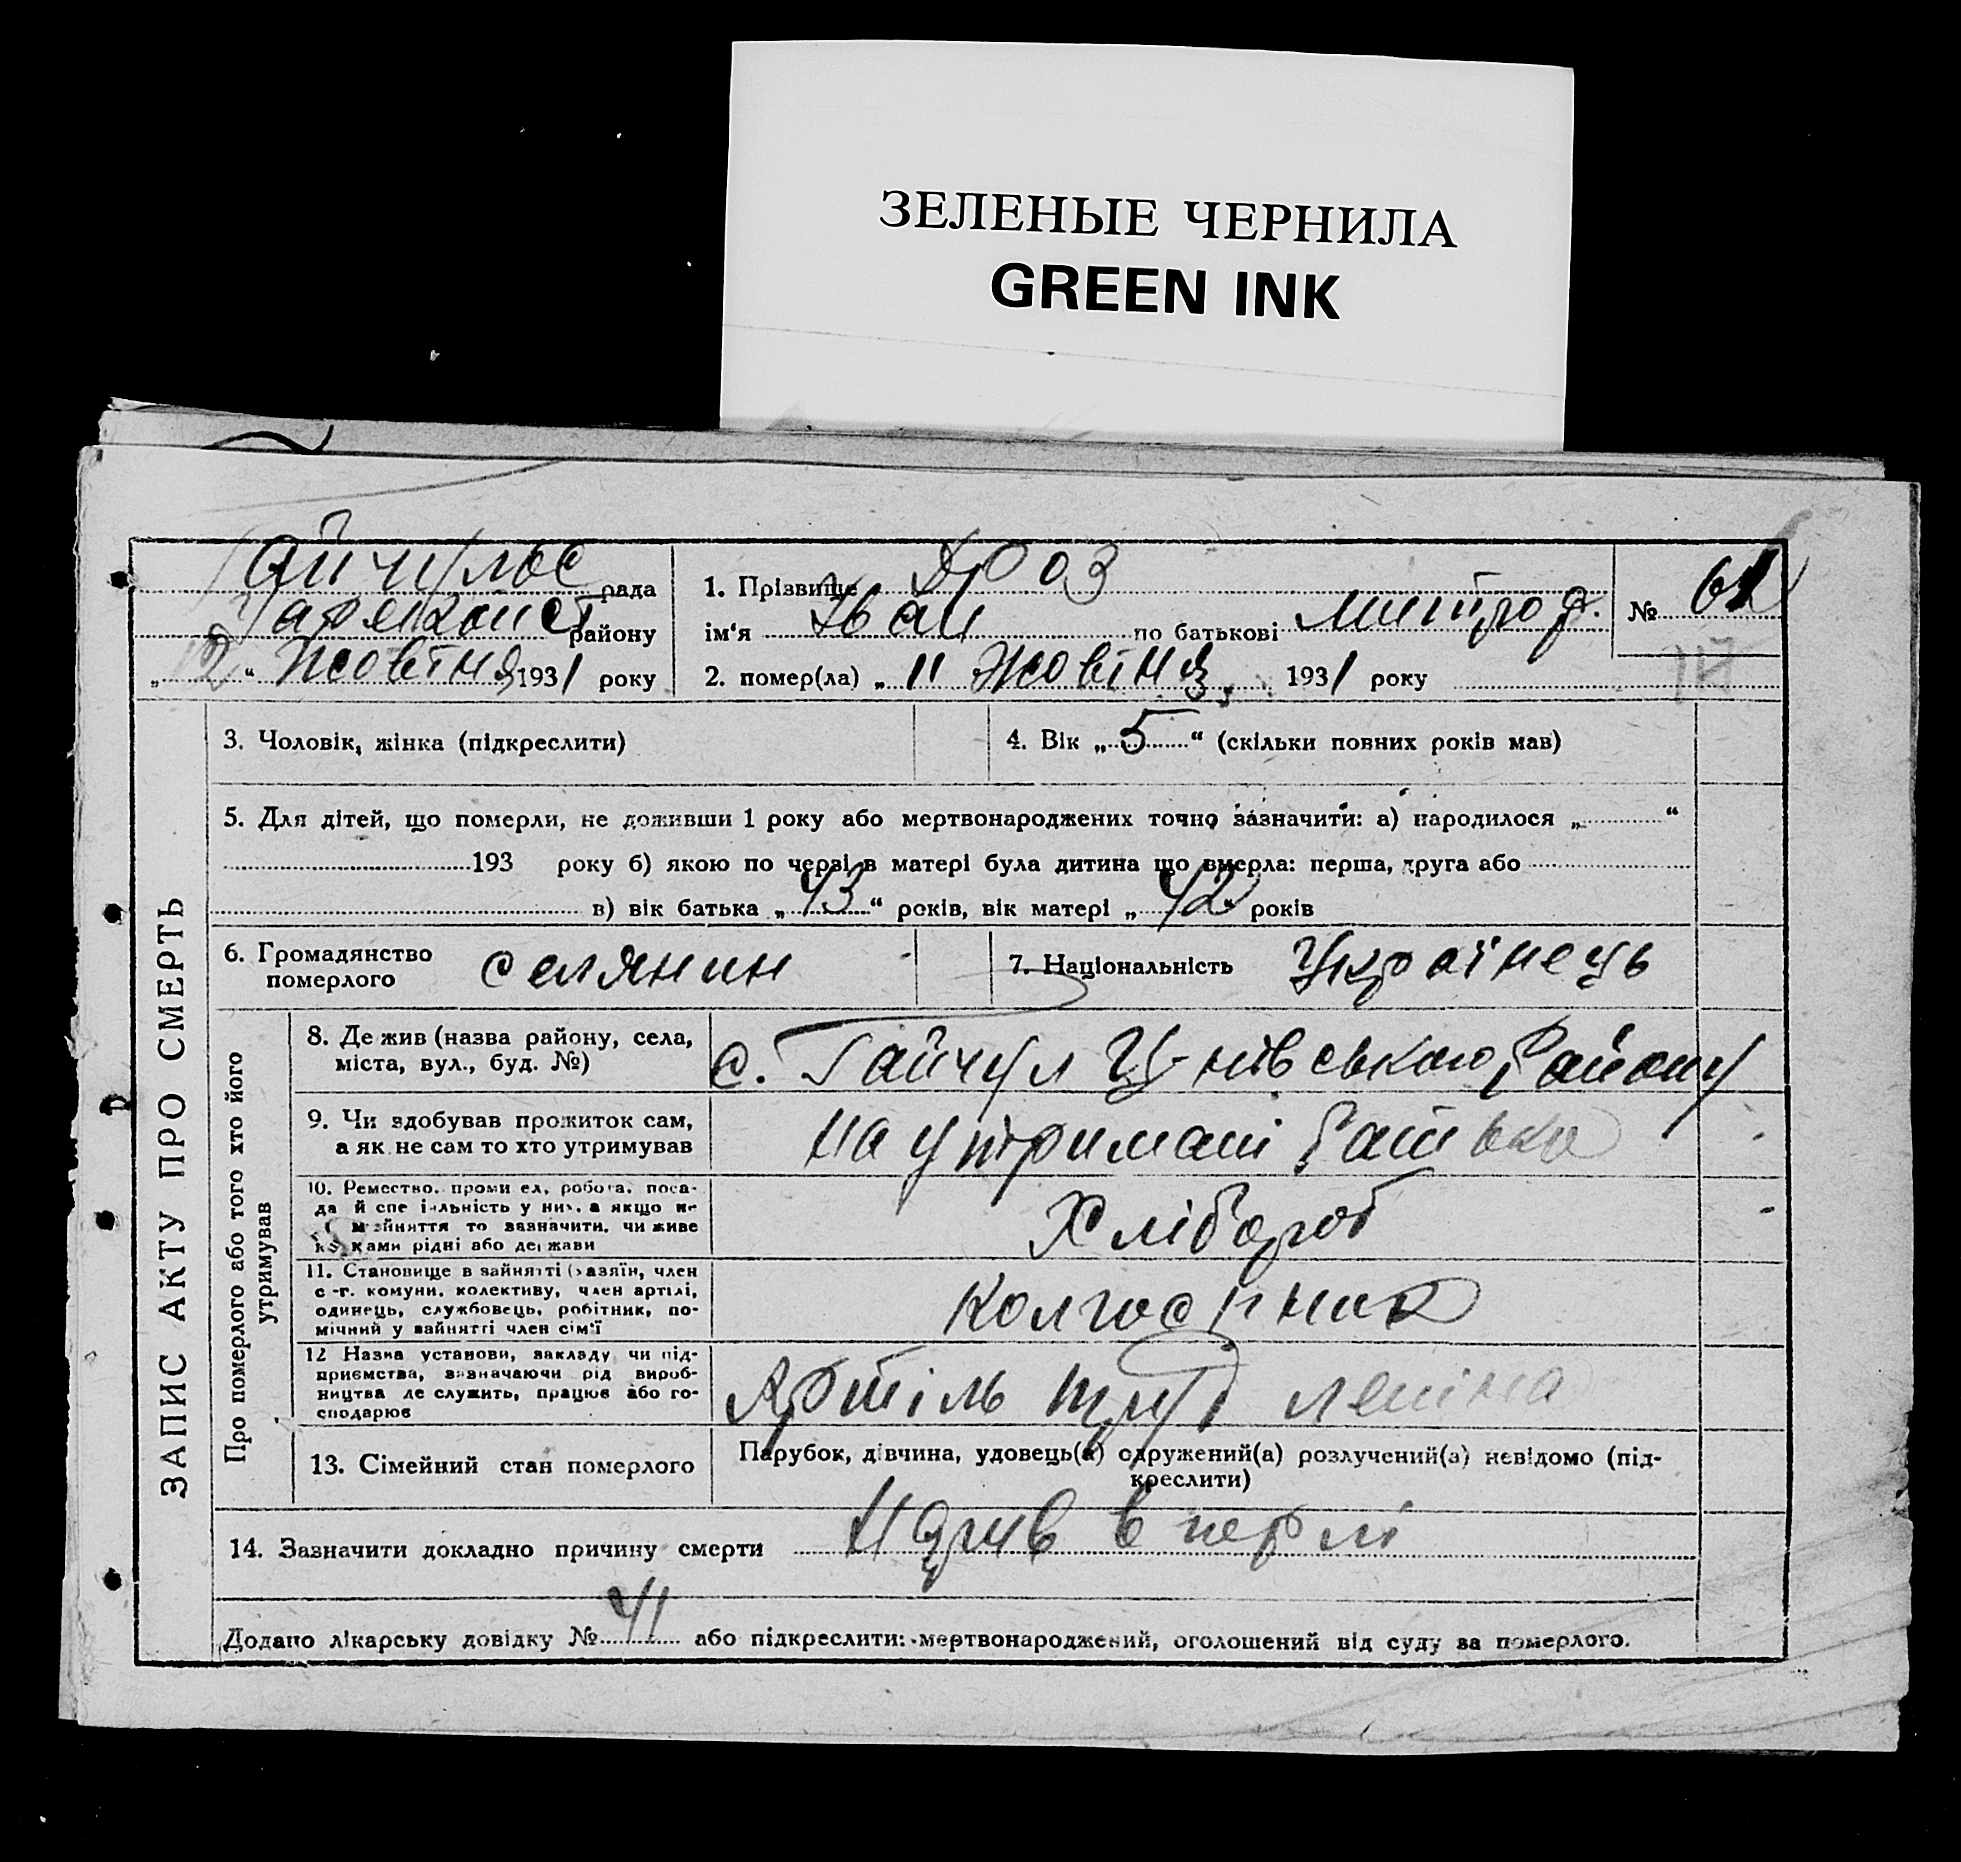 ЗЕЛЕНЫЕ ЧЕРНИЛА
GREEN INK
Гайчулъс рада
району
„ 2 “ Жовтня 1931 року
1. Прізвище Дроз
ім'я Іван по батькові Митроф.
№ 61
2. помер(ла) „ 11 Жовтня 1931 року
ЗАПИС АКТУ ПРО СМЕРТЬ
3. Чоловік, жінка (підкреслити)
4. Вік „ 5 “ (скільки повних років мав)
5. Для дітей, що померли, не доживши 1 року або мертвонароджених точно зазначити: а) народилося „ “
193 року б) якою по черзі в матері була дитина що вмерла: перша, друга або
в) вік батька „ 43 “ років, вік матері „ 42 “ років
6. Громадянство померлого селянин
7. Національність Українець
Про померлого або того хто його утримував
8. Де жив (назва району, села,
міста, вул., буд. №)
с. Гайчул Ц-нівського Району
9. Чи здобував прожиток сам,
а як не сам то хто утримував
На утримані батька
10. Ремество, промисел, робота, поса-
да й спеціяльність у них, а якщо не
має зайняття то зазначити, чи живе
коштами рідні або держави
Хлібороб
11. Становище в зайнятті (хазяїн, член
с.-г. комуни, колективу, член артілі,
одинець, службовець, робітник, по-
мічний у зайнятті член сім'ї
Колгоспник
12 Назва установи, закладу чи під-
приємства, визначаючи рід вироб-
ництва де служить, працює або го-
сподарює
Артіль труд леніна
13. Сімейний стан померлого
Парубок, дівчина, удовець(а) одружений(а) розлучений(а) невідомо (під-
креслити)
14. Зазначити докладно причину смерти в
Додано лікарську довідку № 41 або підкреслити: мертвонароджений, оголошений від суду за померлого.